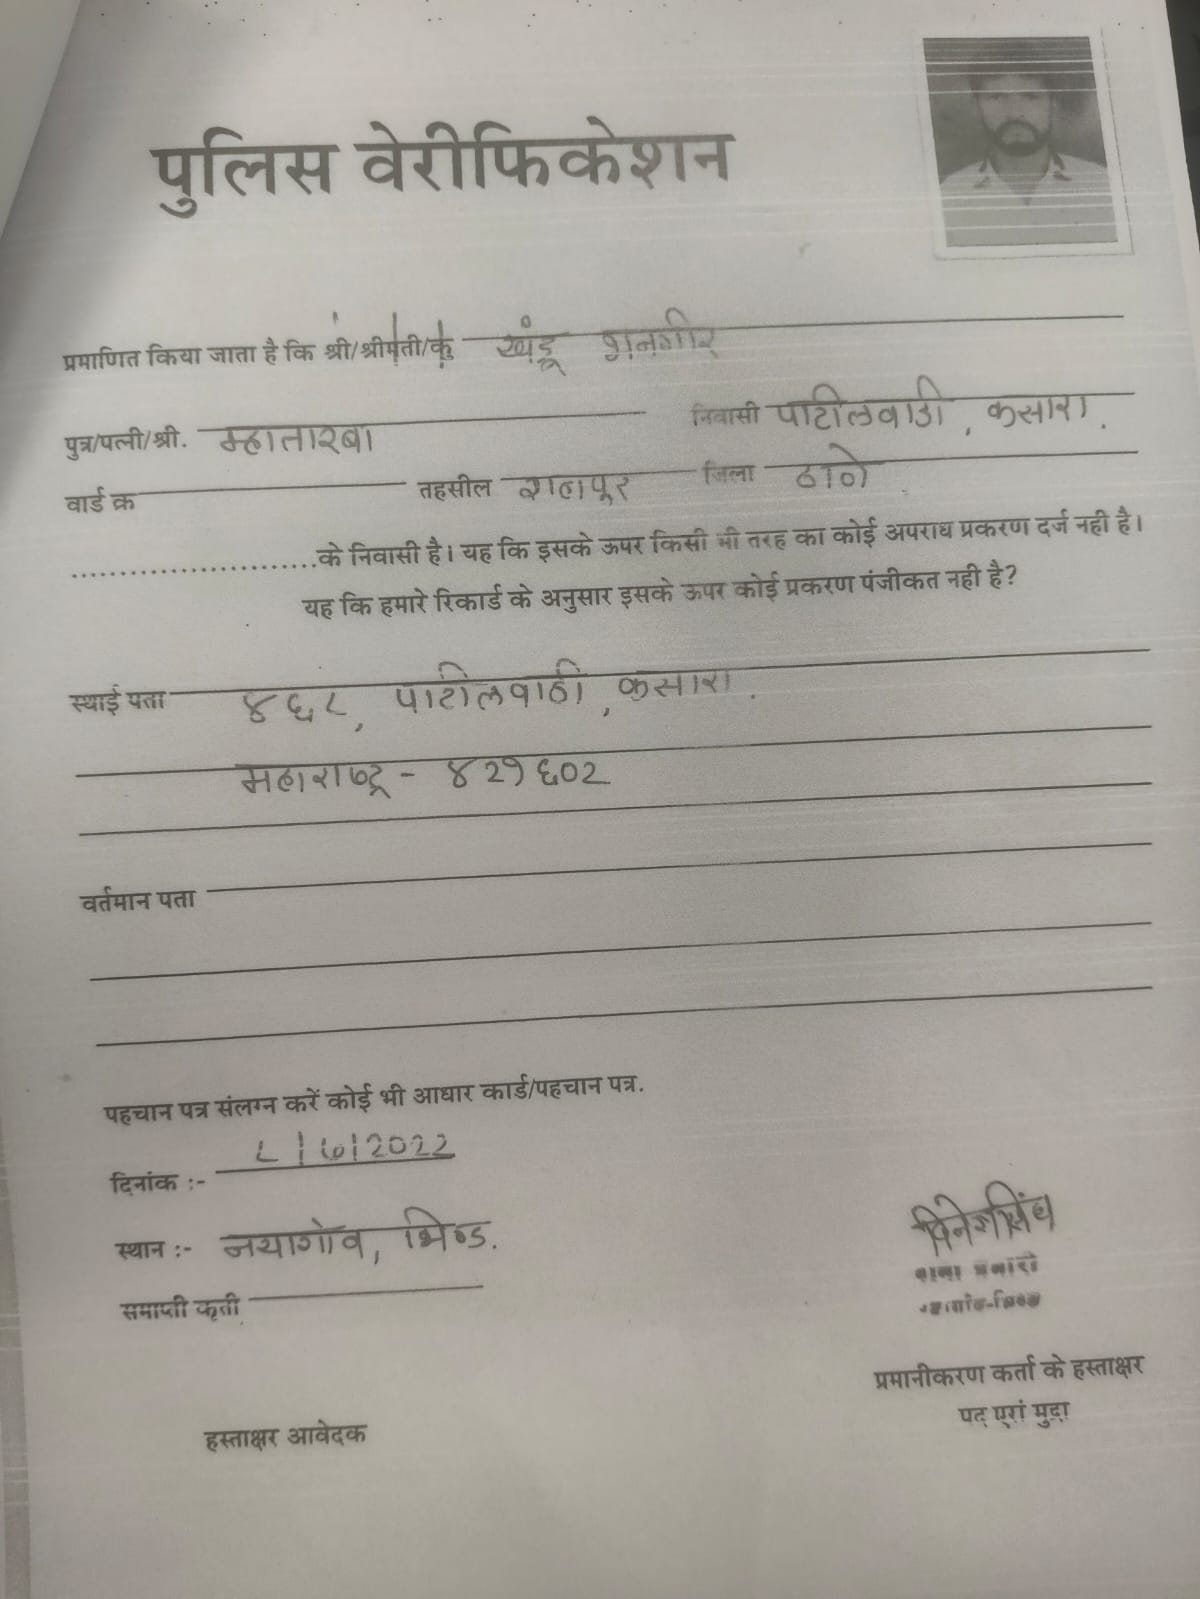 पुलिस वेरीफिकेशन
प्रमाणित किया जाता है कि श्री/श्रीमती/कु खंडू
पुत्र/पत्नी/श्री. म्हातारबा निवासी पाटीलवाडी, कसारा.
वार्ड क्र तहसील शहापूर जिला ठाणे
..........................के निवासी है। यह कि इसके ऊपर किसी भी तरह का कोई अपराध प्रकरण दर्ज नही है।
यह कि हमारे रिकार्ड के अनुसार इसके ऊपर कोई प्रकरण पंजीकत नही है?
स्थाई पता ४६८, पाटीलवाडी, कसारा.
महाराष्ट्र - ४२१६०२
वर्तमान पता
पहचान पत्र संलग्न करें कोई भी आधार कार्ड/पहचान पत्र.
दिनांक :- ८/७/2022
स्थान :- नयागाँव, भिण्ड.
समाप्ती कृती
थाना प्रभारी
प्रमानीकरण कर्ता के हस्ताक्षर
पद एरां मुद्रा
हस्ताक्षर आवेदक